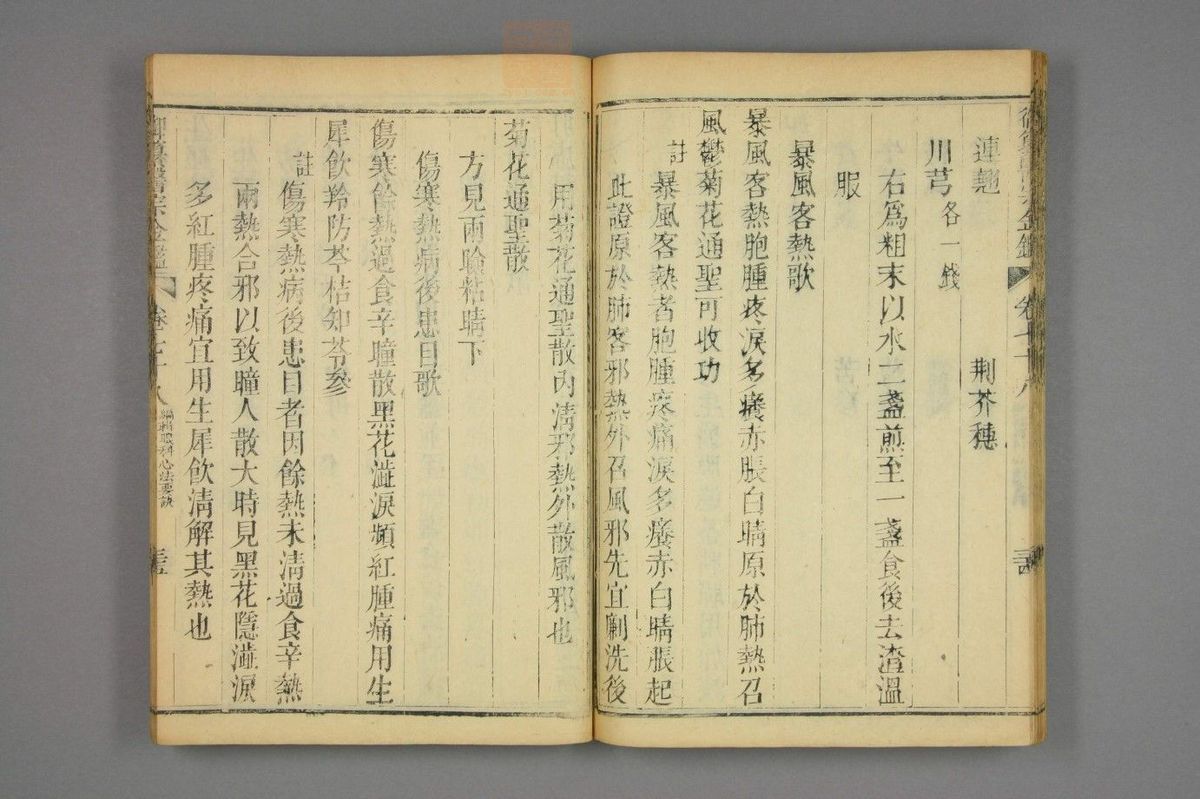 連翹
川芎各一錢 荆芥穗
右爲粗末以水二盞煎至一盞食後去渣溫
服
暴風客熱歌
暴風客熱胞腫疼淚多癢赤脹白睛原於肺熱召
風鬱菊花通聖可收功
註暴風客熱者胞腫疼痛淚多癢赤白睛脹起
此證原於肺客邪熱外召風邪先宜劆洗後
用菊花通聖散內淸邪熱外散風邪也
菊花通聖散
方見兩瞼粘睛下
傷寒熱病後患目歌
傷寒餘熱過食辛瞳散黑花澁淚頻紅腫痛用生
犀飮羚防芩桔知苓參
註傷寒熱病後患目者因餘熱未淸過食辛熱
兩熱合邪以致瞳人散大時見黑花隱澁淚
多紅腫疼痛宜用生犀飮淸解其熱也
御纂醫宗金鑑 卷七十八 編輯眼科心法要訣